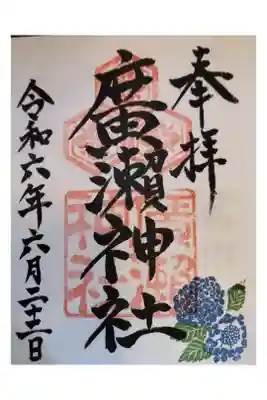 奉拝
廣瀬神社
令和六年六月二十二日